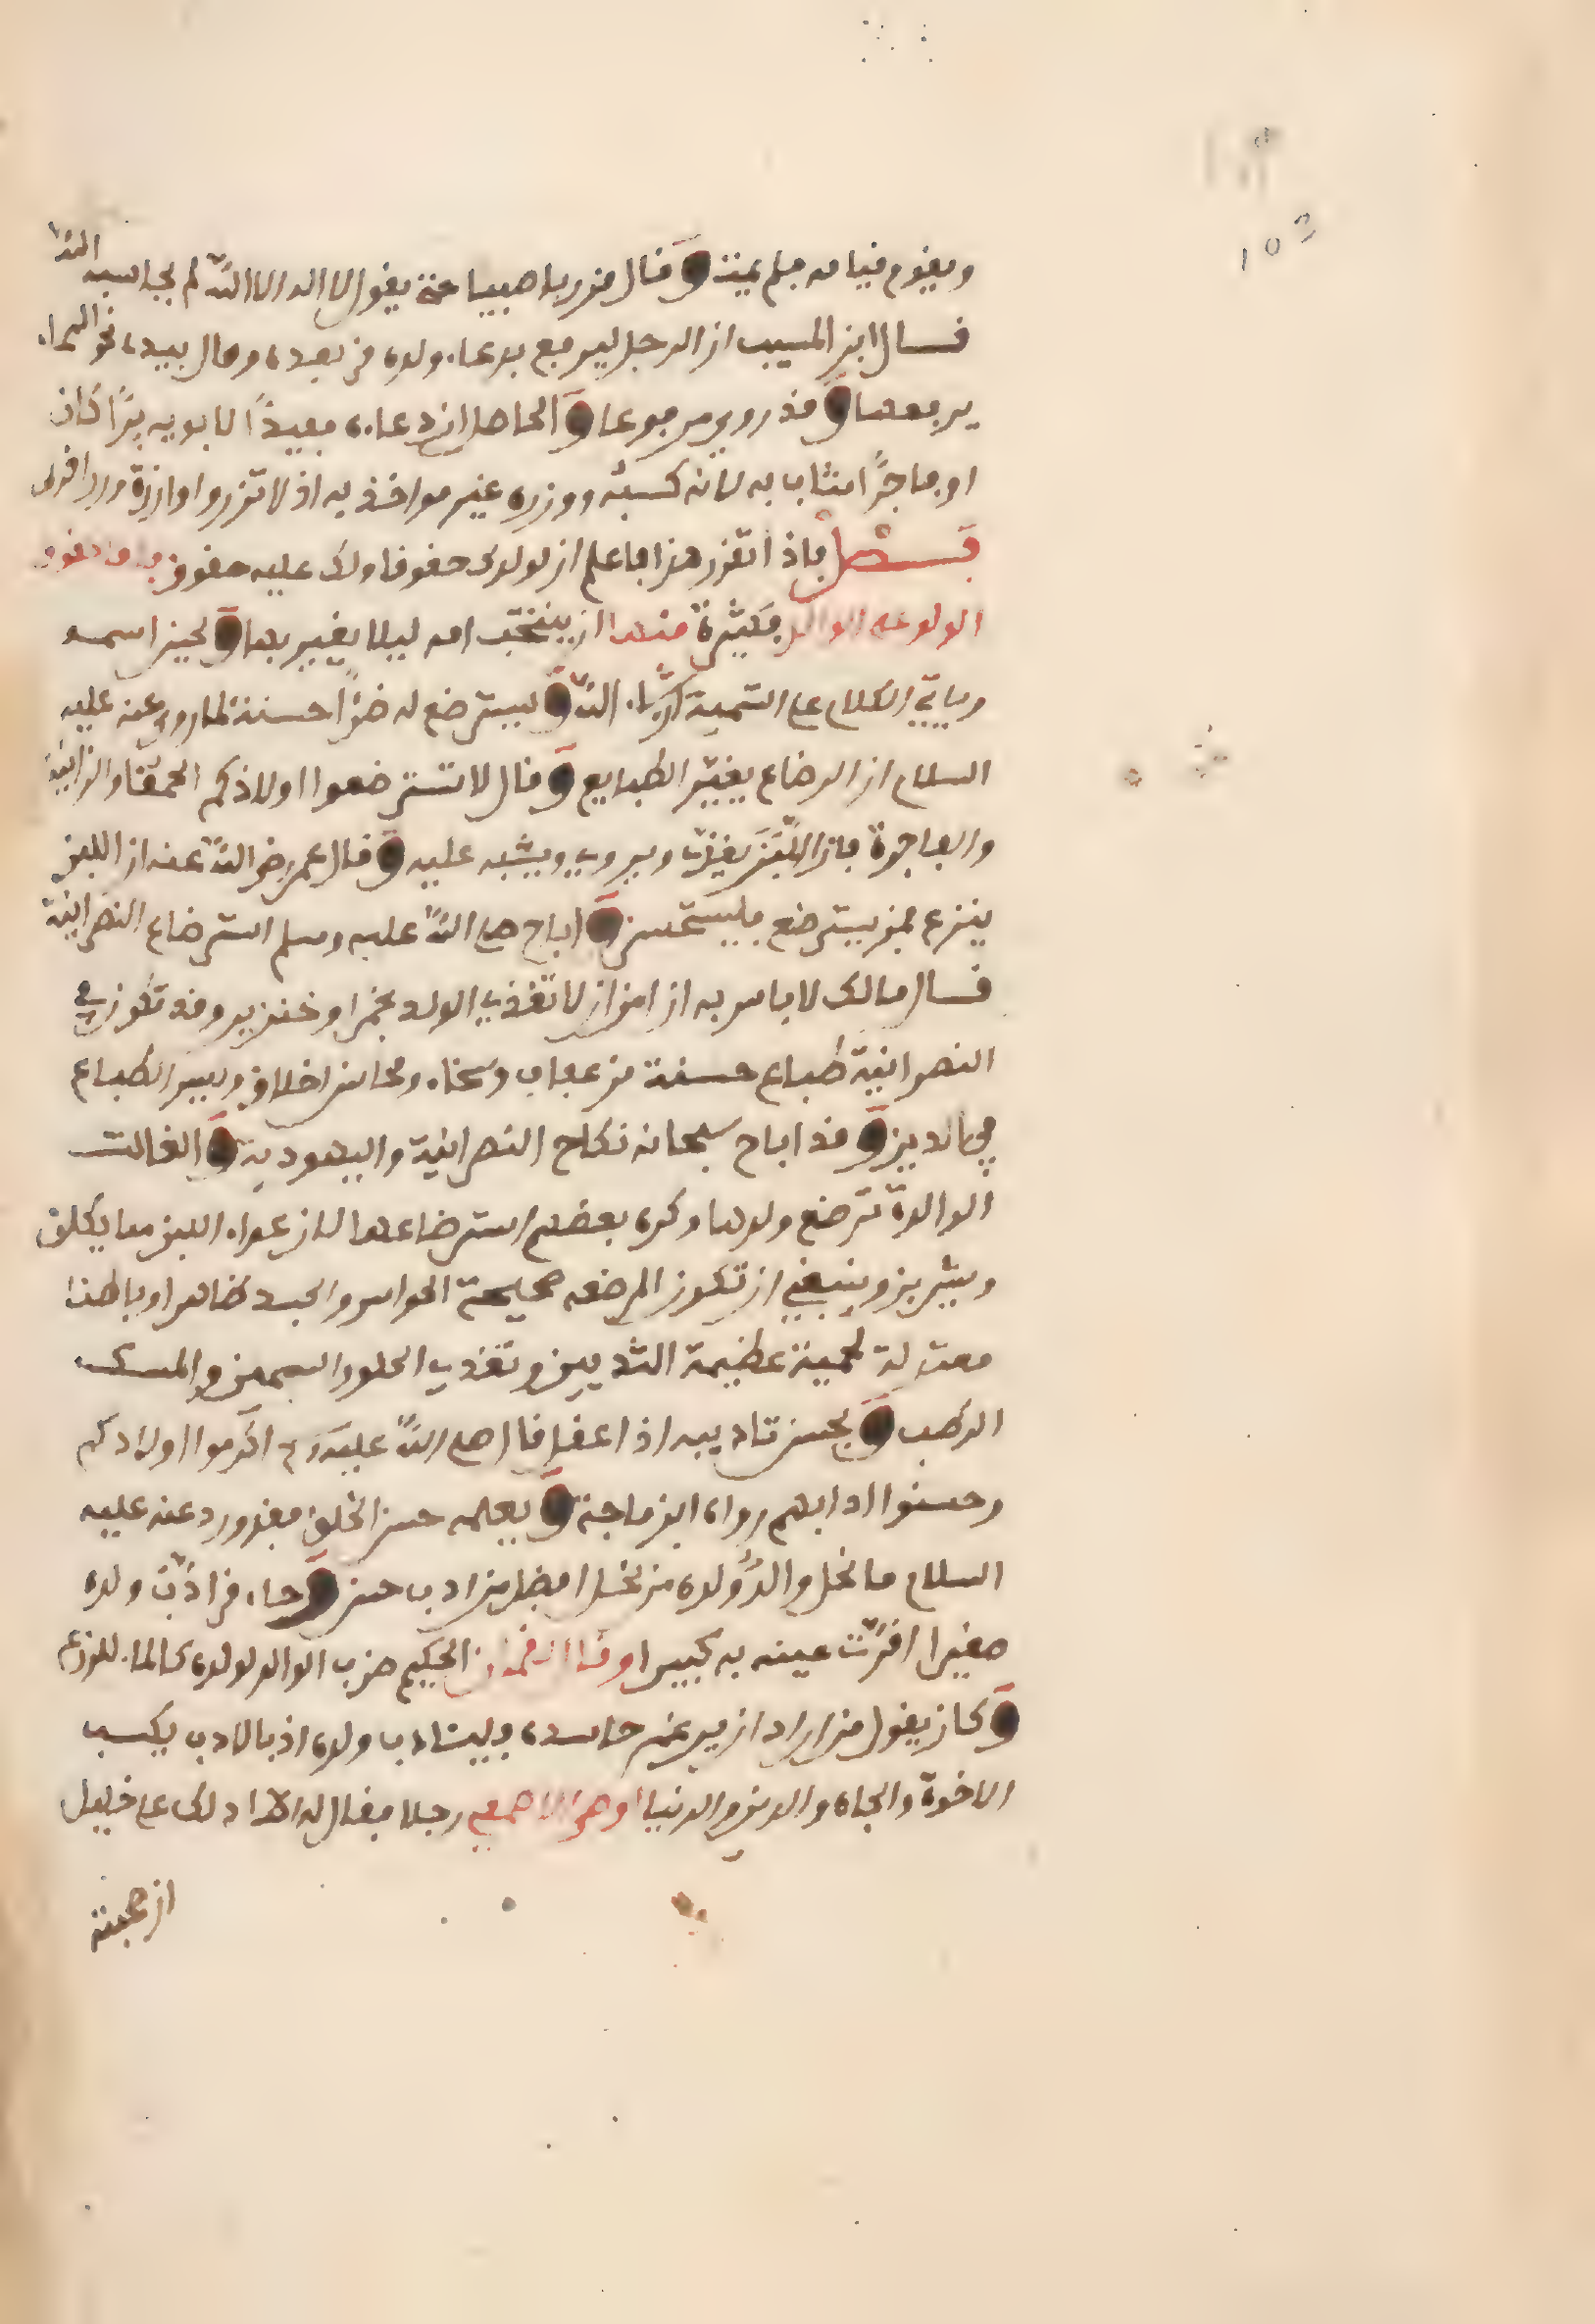 ويقوم قيامه فلم يمت وقال من ربا صبيا حتى يقول لا اله الا الله لم يحاسبه الله
قال ابن المسيب ان الرجل ليرفع بدعاء ولده من بعده وقال بيده نحو السماء
يرفعها وقد روي مرفوعا والحاصل ان دعاءه مفيدًا لابويه برًا كان
او فاجرًا مثاب به لانه كسبه ووزره غير مواخذ به اذ لا تزر وازرة وزر اخرى
فصل فاذا تقرر هذا فاعلم ان لولدك حقوقا ولك عليه حقوق فاما حقوق
الولد على الوالد فكثيرة منها ان ينتخب امه ليلا يغير بها ويحسن اسمه
وياتي الكلام على التسمية ان شاء الله ويسترضع له ضرًا حسنة لما روي عنه عليه
السلام ان الرضاع يغير الطبايع وقال لا تسترضعوا اولادكم الحمقا والزانية
والفاجرة فان اللبن يغذي ويروي ويشبه عليه وقال عمر رضي الله عنه ان اللبن
ينزع لمن يسترضع فليستحسن واباح صلى الله عليه وسلم استرضاع النصرانية
قال مالك لا باس به ان امن ان لا تغذي الولد بخمر او خنزير وقد تكون في
النصرانية طباع حسنة من عفاف وسخاء ومحاسن اخلاق وليس الطباع
في الدين وقد اباح سبحانه نكاح النصرانية واليهودية والغالب
الوالدة ترضع ولدها وكره بعضهم استرضاعها لان غذاء اللبن مما ياكلن
ويشربن وينبغي ان تكون المرضعة صحيحة الحواس والجسد ظاهرا وباطنا
معتدلة لحمية عظيمة الثديين وتغذى الحلو والسمين والمسك
الرطب ويحسن تاديبه اذا عقل قال صلى الله عليه وسلم اكرموا اولادكم
وحسنوا ادابهم رواه ابن ماجة ويعلمه حسن الخلق فقد ورد عنه عليه
السلام ما نحل والدٌ ولده من نحل افضل من ادب حسن وجاء من ادّب ولده
صغيرا اقرّت عينه به كبيرا وقال لقمان الحكيم ضرب الوالد لولده كالماء للزرع
وكان يقول من اراد ان يرغم حاسده فليتادب ولده اذ بالادب يكسب
الاخوة والجاه والدين والدنيا اوصى الاصمعي رجلا فقال له الا ادلك على خليل
ان صحبته